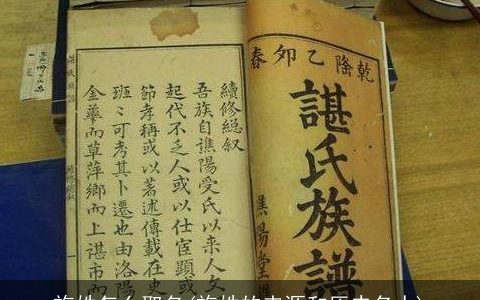 乾隆乙卯春
諶氏族譜
譙陽堂
續修總叙
吾族自譙陽受氏以来人文
起代不乏人或以仕宦顯或
節孝稱或以著述傳載在史
班〻可考其卜遷也由洛陽
金華而草萍鄉而上諶市而
姓怎么取名(姓的来源和历史名人)